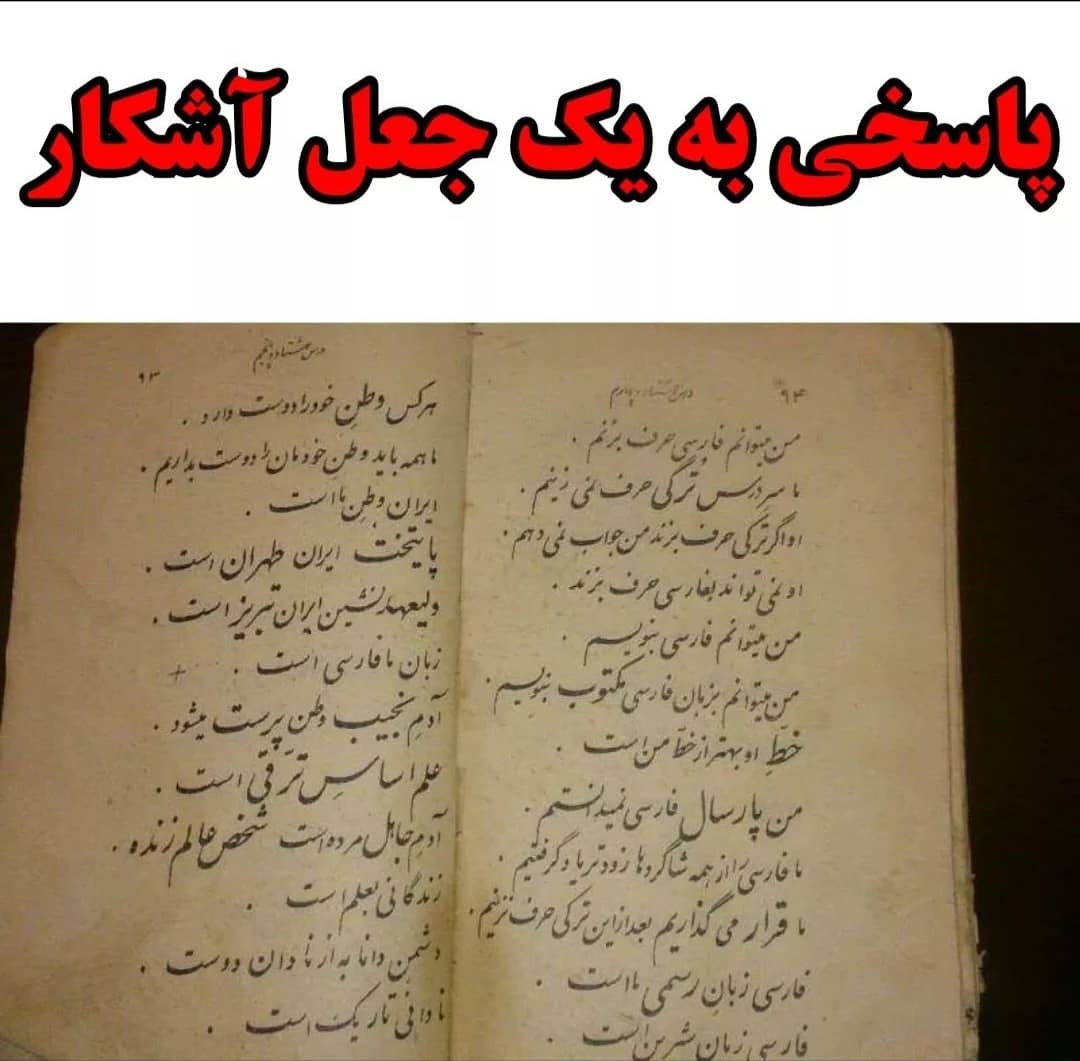 پاسخی به یک جعل آشکار
درس هشتاد و چهارم ۹۴
من میتوانم فارسی حرف بزنم .
ما سرِ درس تُرکی حرف نمی زنیم .
او اگر تُرکی حرف بزند من جواب نمی دهم .
او نمی تواند بفارسی حرف بزند .
من میتوانم فارسی بنویسم .
من میتوانم بزبان فارسی مکتوب بنویسم .
خطِّ او بهتر از خطِّ من است .
من پارسال فارسی نمیدانستم .
ما فارسی را از همه شاگردها زودتر یاد گرفتیم .
ما قرار می گذاریم بعد از این ترکی حرف نزنیم .
فارسی زبانِ رسمی ما است .
فارسی زبان شیرین است .
درس هشتاد و پنجم ۹۳
هر کس وطنِ خود را دوست دارد .
ما همه باید وطنِ خودمان را دوست بداریم .
ایران وطنِ ما است .
پایتخت ایران طهران است .
ولیعهد نشین ایران تبریز است .
زبان ما فارسی است .
آدمِ نجیب وطن پرست میشود .
علم اساسِ ترَقّی است .
آدمِ جاهل مرده است شخص عالم زنده .
زندگانی بعلم است .
دشمنِ دانا به از نادان دوست .
نادانی تاریک است .